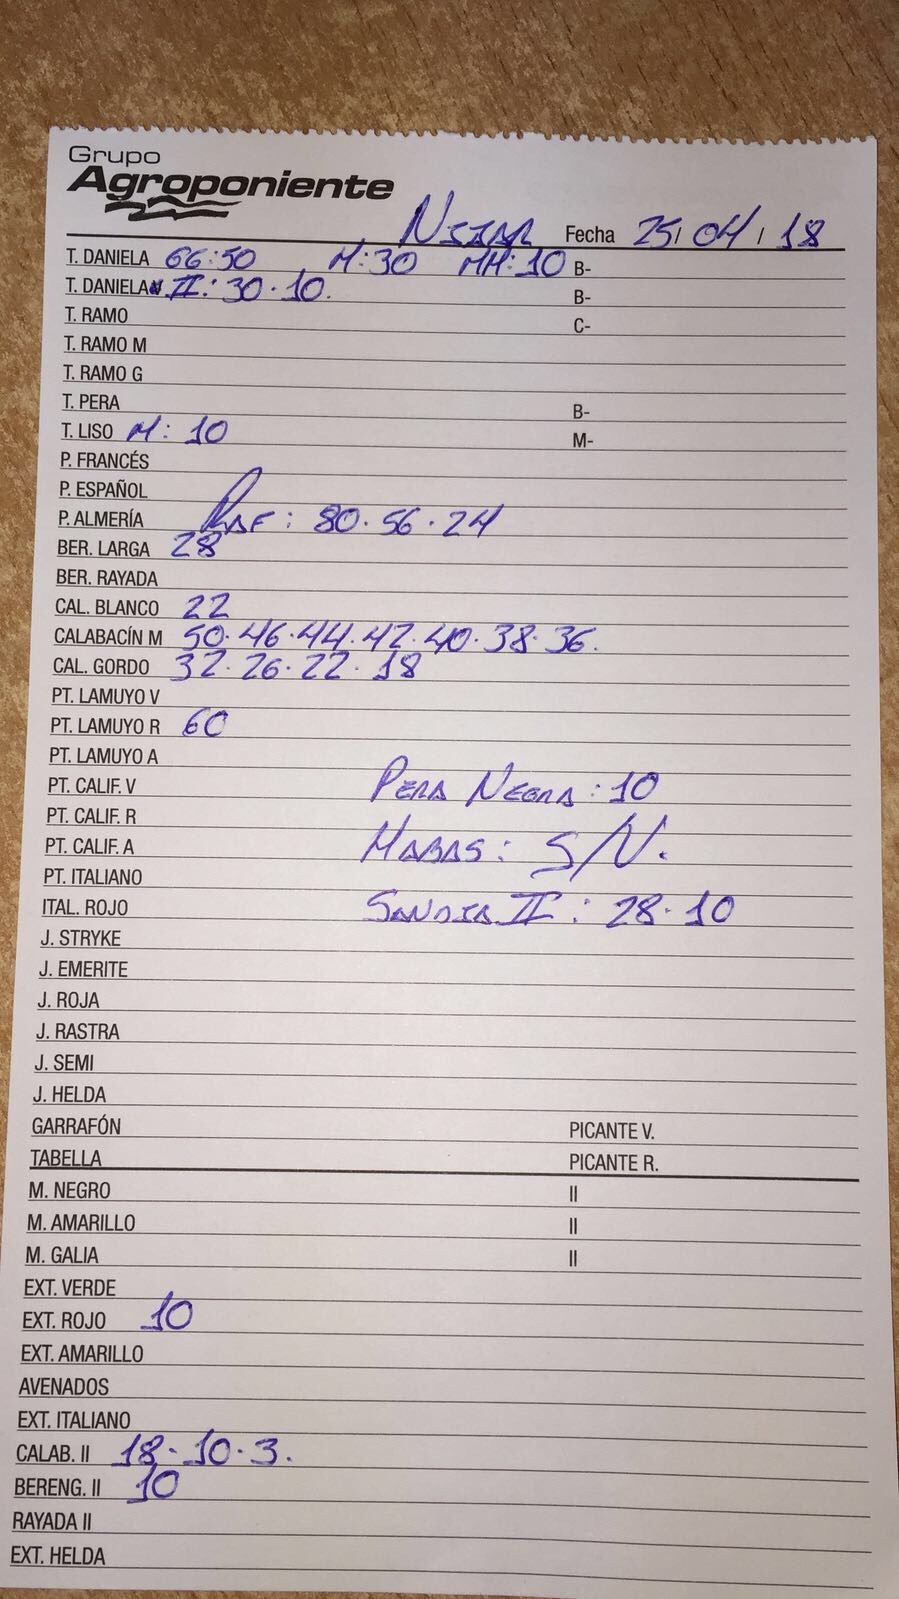 Grupo
Agroponiente
NIJAR Fecha 25/04/18
T. DANIELA 66:50 M:30 MM:10 B-
T. DANIELA II: 30·10. B-
T. RAMO C-
T. RAMO M
T. RAMO G
T. PERA B-
T. LISO M: 10 M-
P. FRANCÉS
P. ESPAÑOL
P. ALMERÍA RAF: 80·56·24
BER. LARGA 28
BER. RAYADA
CAL. BLANCO 22
CALABACÍN M 50·46·44·42·40·38·36.
CAL. GORDO 32·26·22·18
PT. LAMUYO V
PT. LAMUYO R 60
PT. LAMUYO A
PT. CALIF. V PERA NEGRA: 10
PT. CALIF. R
PT. CALIF. A HABAS: S/V.
PT. ITALIANO
ITAL. ROJO SANDIA II: 28·10
J. STRYKE
J. EMERITE
J. ROJA
J. RASTRA
J. SEMI
J. HELDA
GARRAFÓN PICANTE V.
TABELLA PICANTE R.
M. NEGRO II
M. AMARILLO II
M. GALIA II
EXT. VERDE
EXT. ROJO 10
EXT. AMARILLO
AVENADOS
EXT. ITALIANO
CALAB. II 18·10·3.
BERENG. II 10
RAYADA II
EXT. HELDA